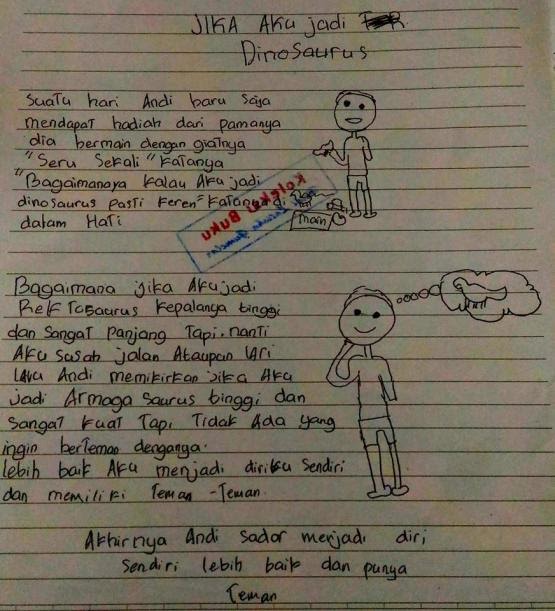 JIKA AKu jadi
Dinosaurus
Suatu hari Andi baru saja
mendapat hadiah dari pamanya
dia bermain dengan giatnya
"Seru Sekali" Katanya
"Bagaimanaya kalau AKu jadi
dinosaurus pasti keren" Katanya di
dalam Hati
main
Koleksi Buku
Bagaimana jika AKu jadi
RelkTosaurus Kepalanya tinggi
dan Sangat Panjang Tapi. nanti
AKu susah jalan Ataupan LAri
LALu Andi memikirkan jika AKu
jadi Armaga saurus tinggi dan
Sangat kuat Tapi Tidak Ada yang
ingin berteman denganya.
lebih baik AKu menjadi diriku Sendiri
dan memiliki Teman - Teman.
Akhirnya Andi sadar menjadi diri
Sendiri lebih baik dan punya
Teman